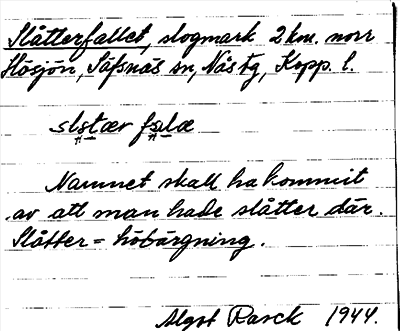 Slåtterfallet, slogmark 2 km. norr
Hösjön, Säfsnäs sn, Näs tg, Kopp. l.
Namnet skall ha kommit
av att man hade slåtter där.
Slåtter = höbärgning.
Algot Rasck 1944.